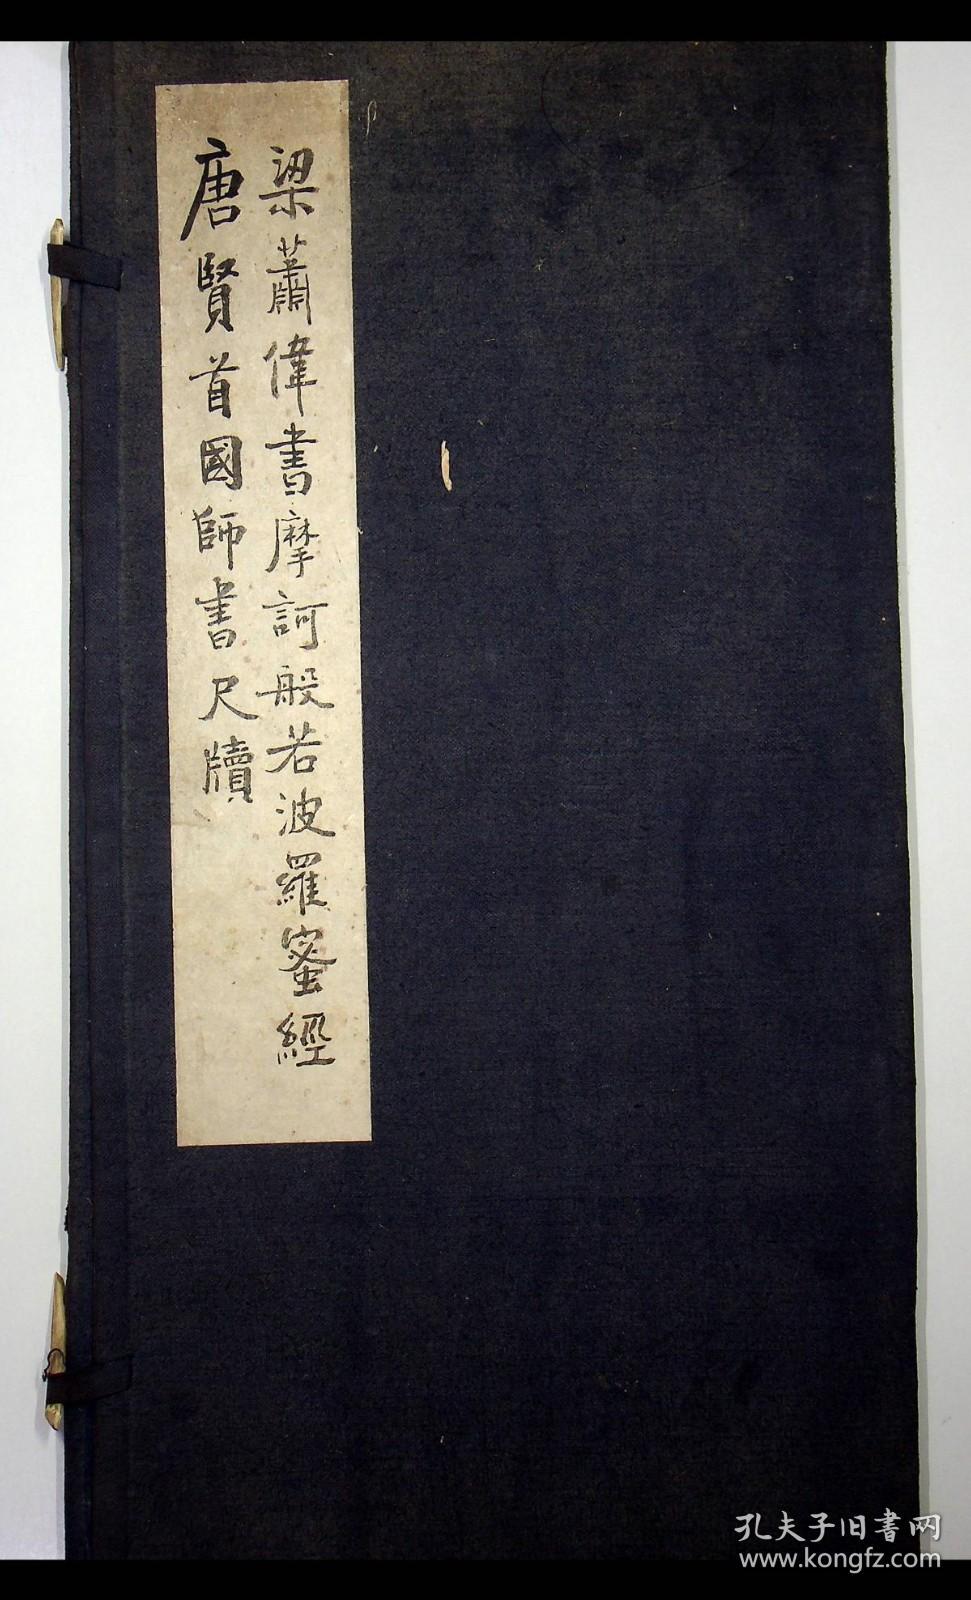 梁蕭偉書摩訶般若波羅蜜經
唐賢首國師書尺牘
孔夫子旧书网
www.kongfz.com